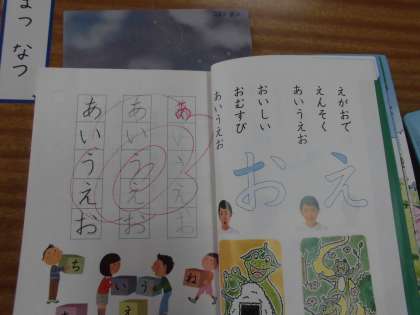 えがおで
えんそく
あいうえお
おいしい
おむすび
あいうえお
え
お
あいうえお
あいうえお
あいうえお
ち
い
う
ね
え
まつ なつ